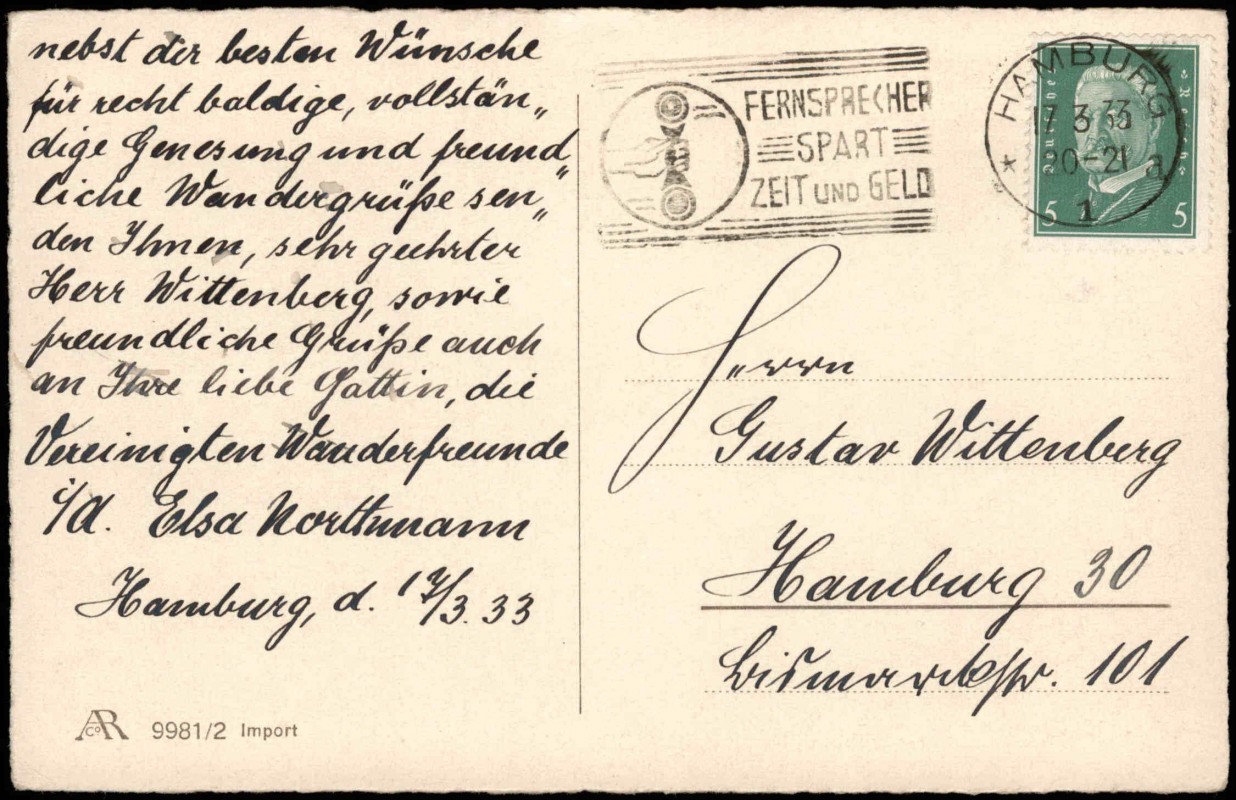 nebst der besten Wünsche
für recht baldige, vollstän„
dige Genesung und freund„
liche Wandergrüße sen„
den Ihnen, sehr geehrter
Herr Wittenberg, sowie
freundliche Grüße auch
an Ihre liebe Gattin, die
Vereinigten Wanderfreunde
i/A. Elsa Northmann
Hamburg, d. 17/3. 33
ACoR 9981/2 Import
FERNSPRECHER
SPART
ZEIT UND GELD
HAMBURG
17 3 33
20-21 a
* 1
Deutsches Reich
5 5
Herrn
Gustav Wittenberg
Hamburg 30
Bismarckstr. 101